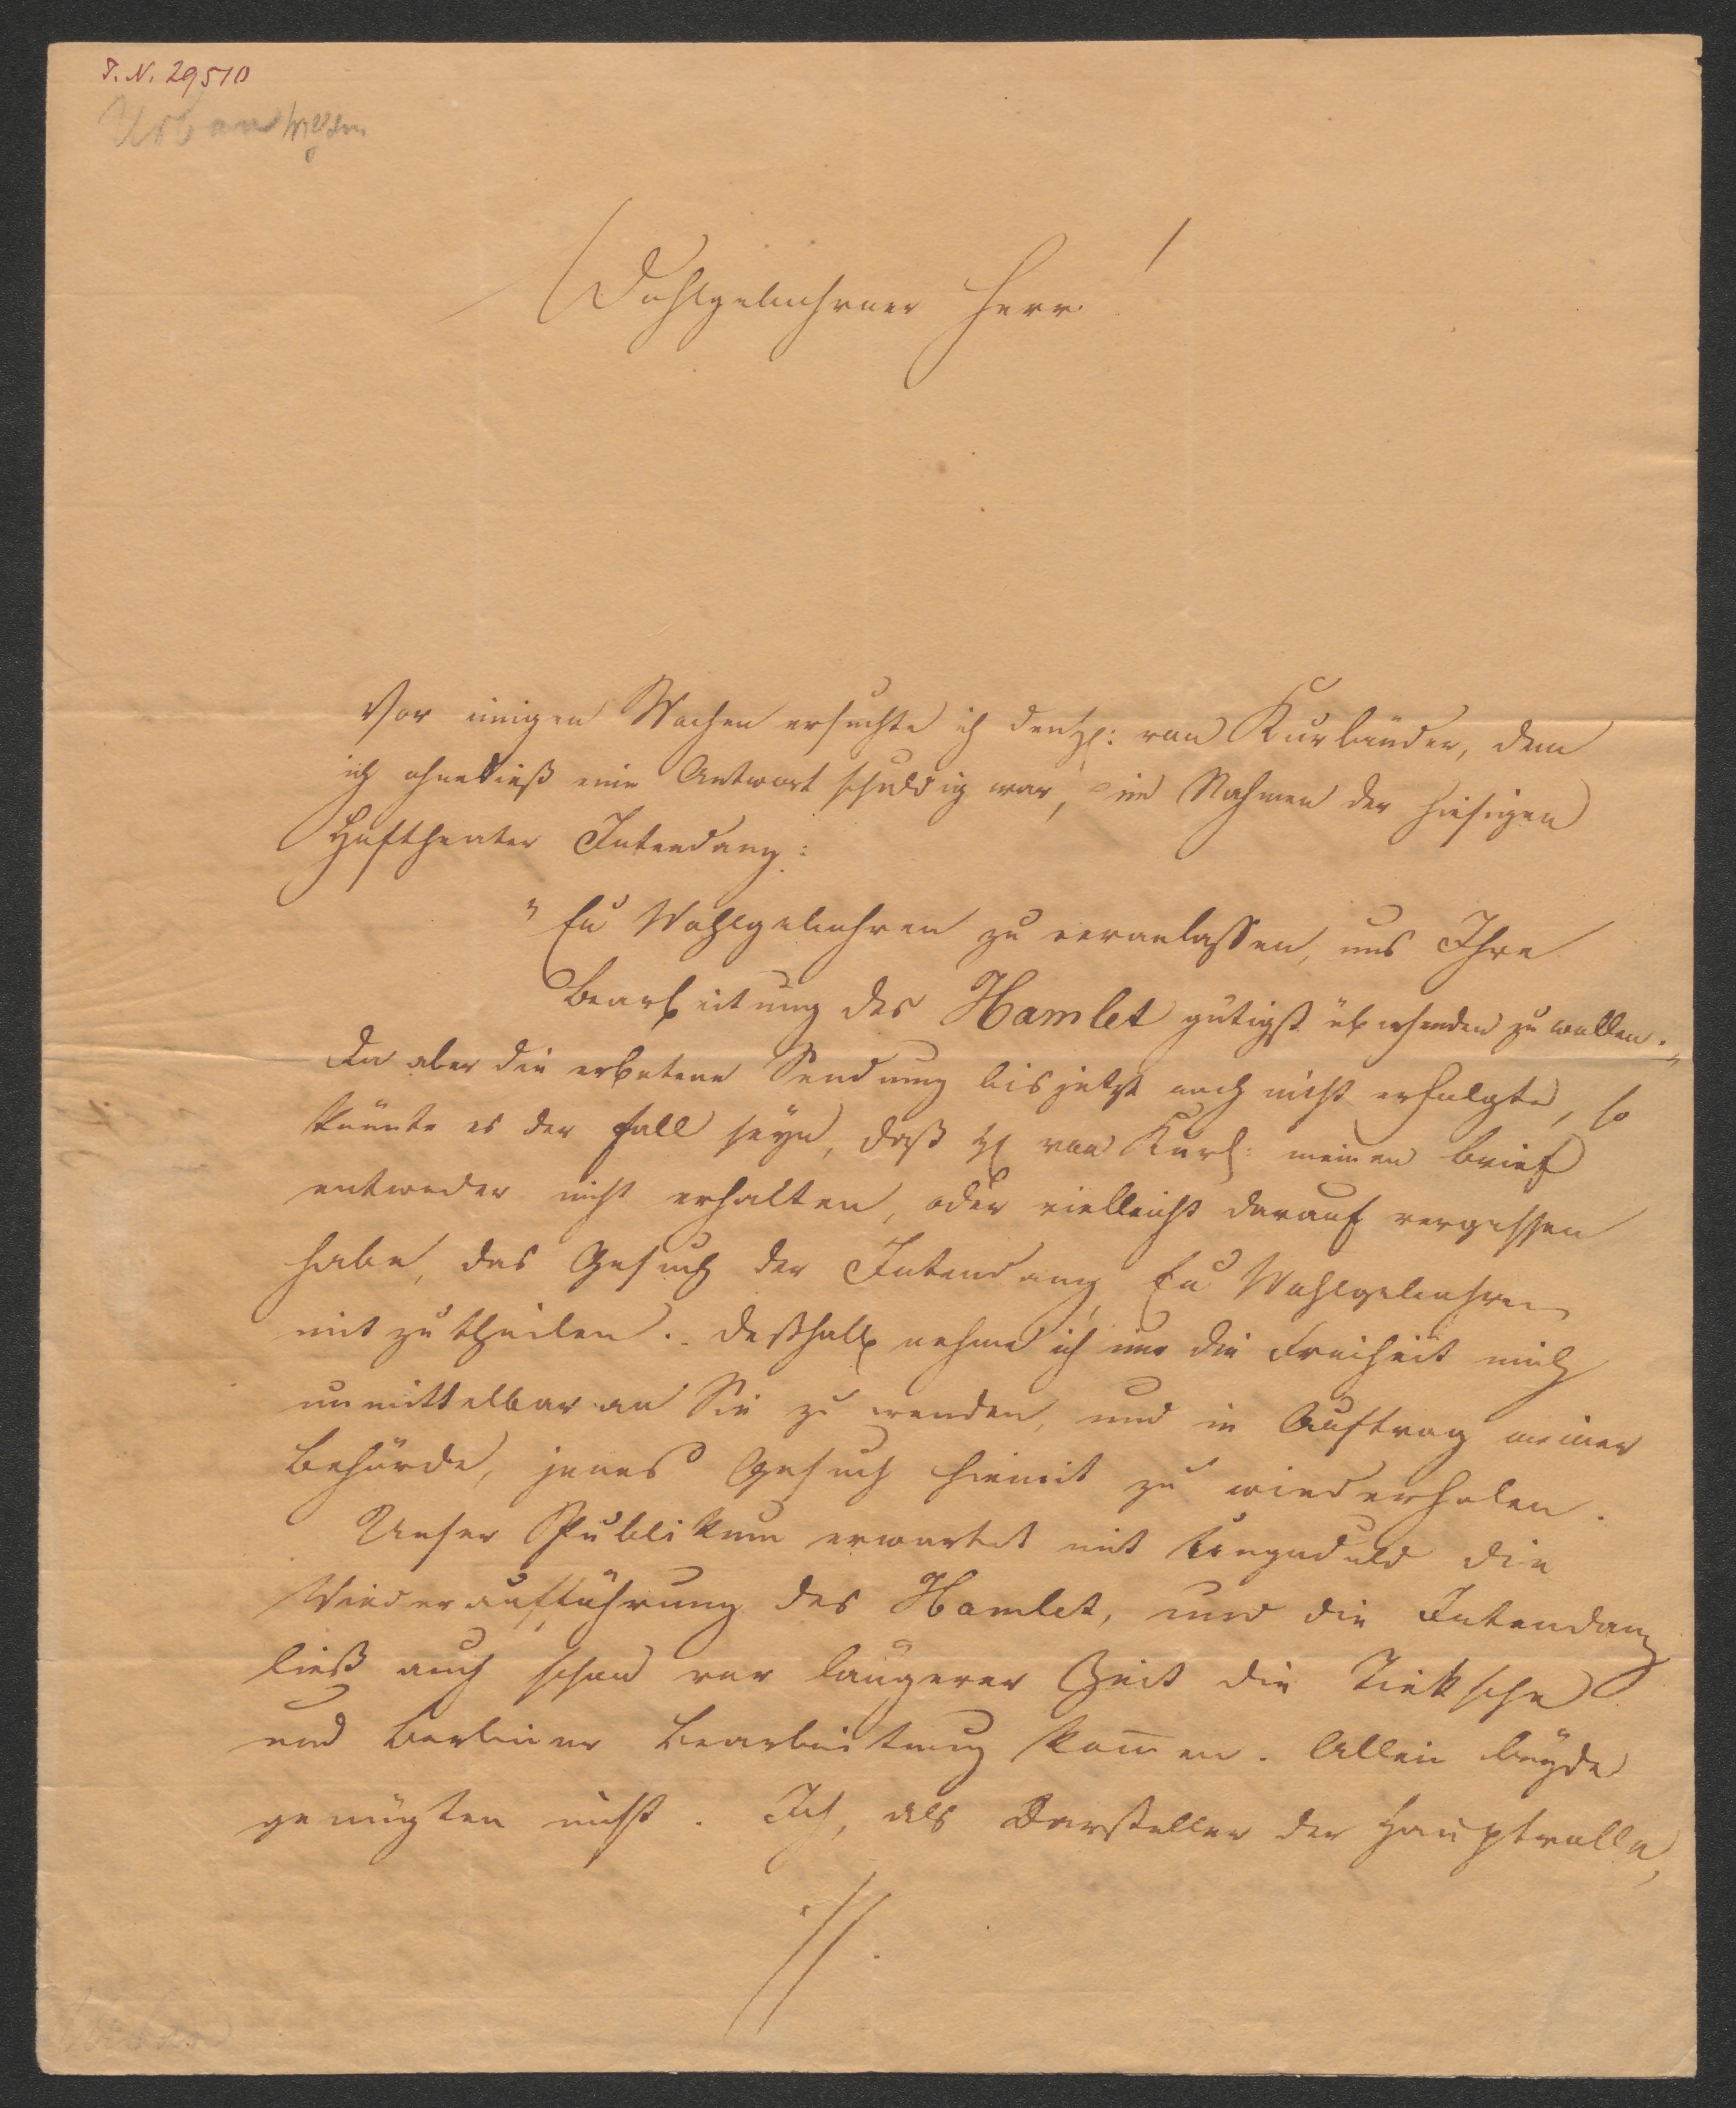 I. N. 29510
Wohlgebohrner Herr!
Vor einigen Wochen ersuchte ich den H: von Kurländer, dem
ich ohnedieß eine Antwort schuldig war, im Nahmen der hiesigen
Hoftheater Intendanz:
"Eu Wohlgebohren zu veranlassen, uns Ihre
Bearbeitung des Hamlet gütigst übersenden zu wollen."
Da aber die erbetene Sendung bis jetzt noch nicht erfolgte, so
könnte es der Fall seyn, daß H von Kurl: meinen Brief
entweder nicht erhalten, oder vielleicht darauf vergessen
habe, das Gesuch der Intendanz, Eu Wohlgebohren
mitzutheilen. Deßhalb nehme ich mir die Freiheit mich
unmittelbar an Sie zu wenden, und in Auftrag meiner
Behörde, jenes Gesuch hiemit zu wiederholen.
Unser Publikum erwartet mit Ungeduld die
Wiederaufführung des Hamlet, und die Intendanz
ließ auch schon vor längerer Zeit die Tieksche
und Berliner Bearbeitung kommen. Allein beyde
genügten nicht. Ich, als Darsteller der Hauptrolle,